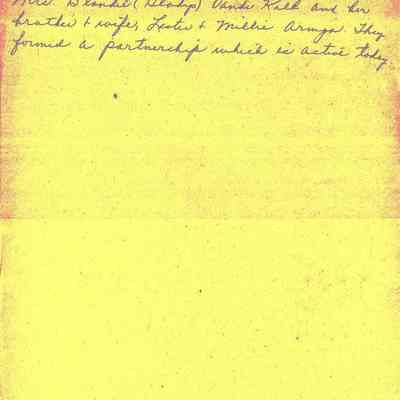 Mrs. Blanche (Gladys) Vande Kolk and her
brother & wife, Lester & Millie Armga. They
formed a partnership which is active today.